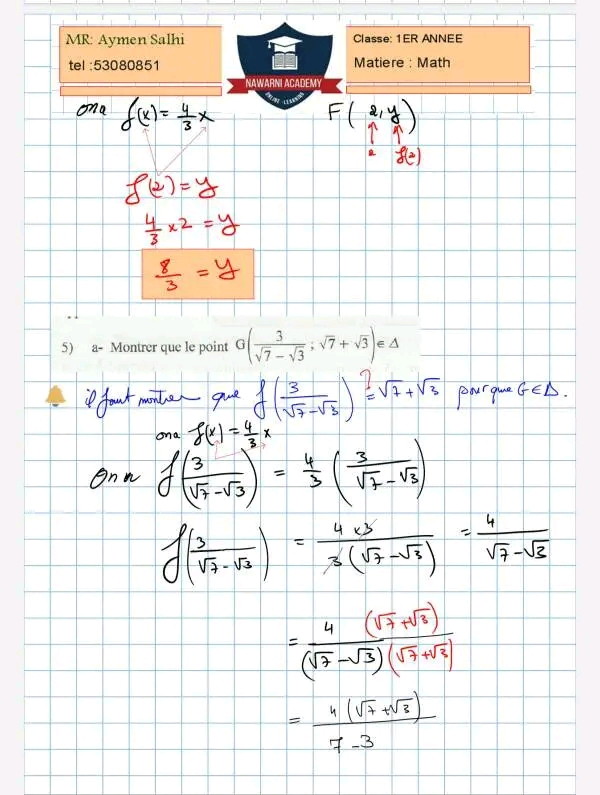 MR: Aymen Salhi
tel :53080851
NAWARNI ACADEMY
ONLINE - LEARNING
Classe: 1ER ANNEE
Matiere : Math
ona f(x) = 4/3 x
F( 2, y )
2 f(2)
f(2) = y
4/3 × 2 = y
8/3 = y
5) a- Montrer que le point G( 3/(√7 − √3) ; √7 + √3 ) ∈ Δ
il faut montrer que f( 3/(√7 − √3) ) =? √7 + √3 pour que G ∈ Δ.
ona f(x) = 4/3 x
On a f( 3/(√7 − √3) ) = 4/3 ( 3/(√7 − √3) )
f( 3/(√7 − √3) ) = 4 × 3 / 3(√7 − √3) = 4/(√7 − √3)
= 4 (√7 + √3) / (√7 − √3)(√7 + √3)
= 4(√7 + √3) / 7 − 3